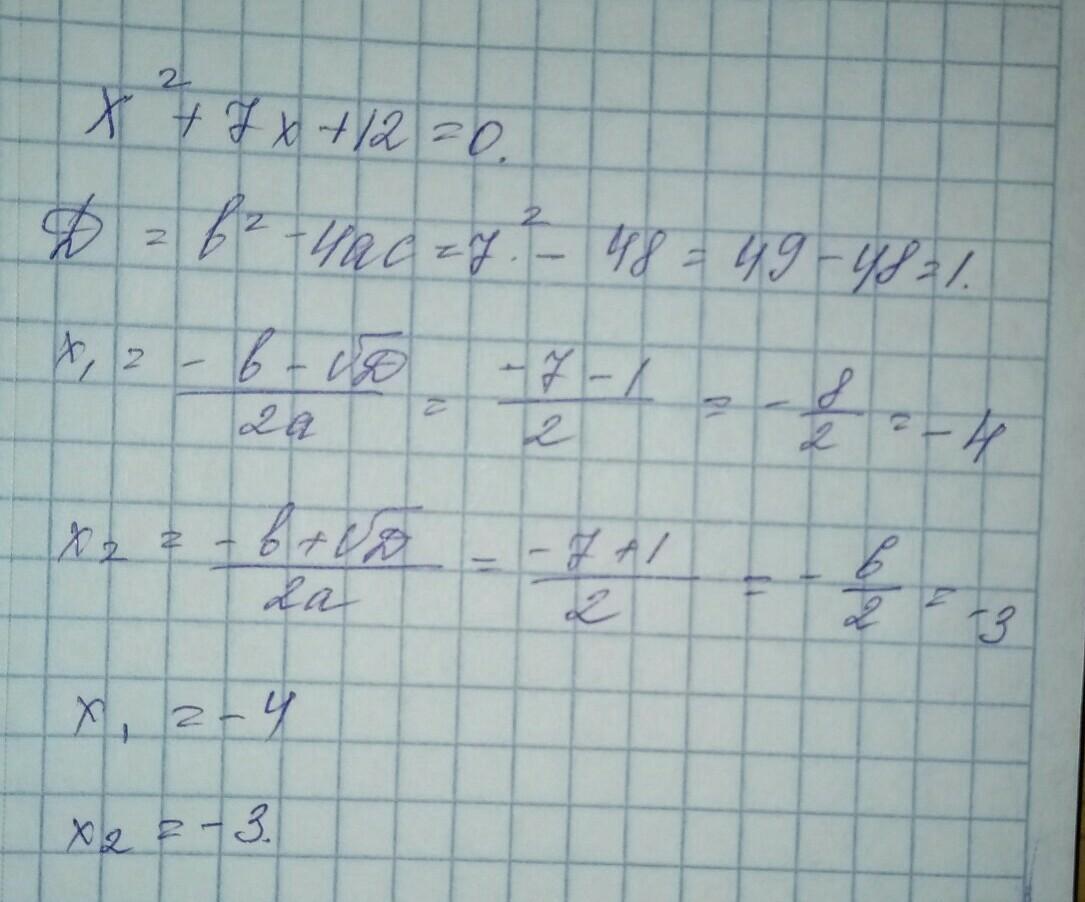 x² + 7x + 12 = 0.
D = b² - 4ac = 7² - 48 = 49 - 48 = 1.
x₁ = (-b - √D)/(2a) = (-7 - 1)/2 = -8/2 = -4
x₂ = (-b + √D)/(2a) = (-7 + 1)/2 = -6/2 = -3
x₁ = -4
x₂ = -3.